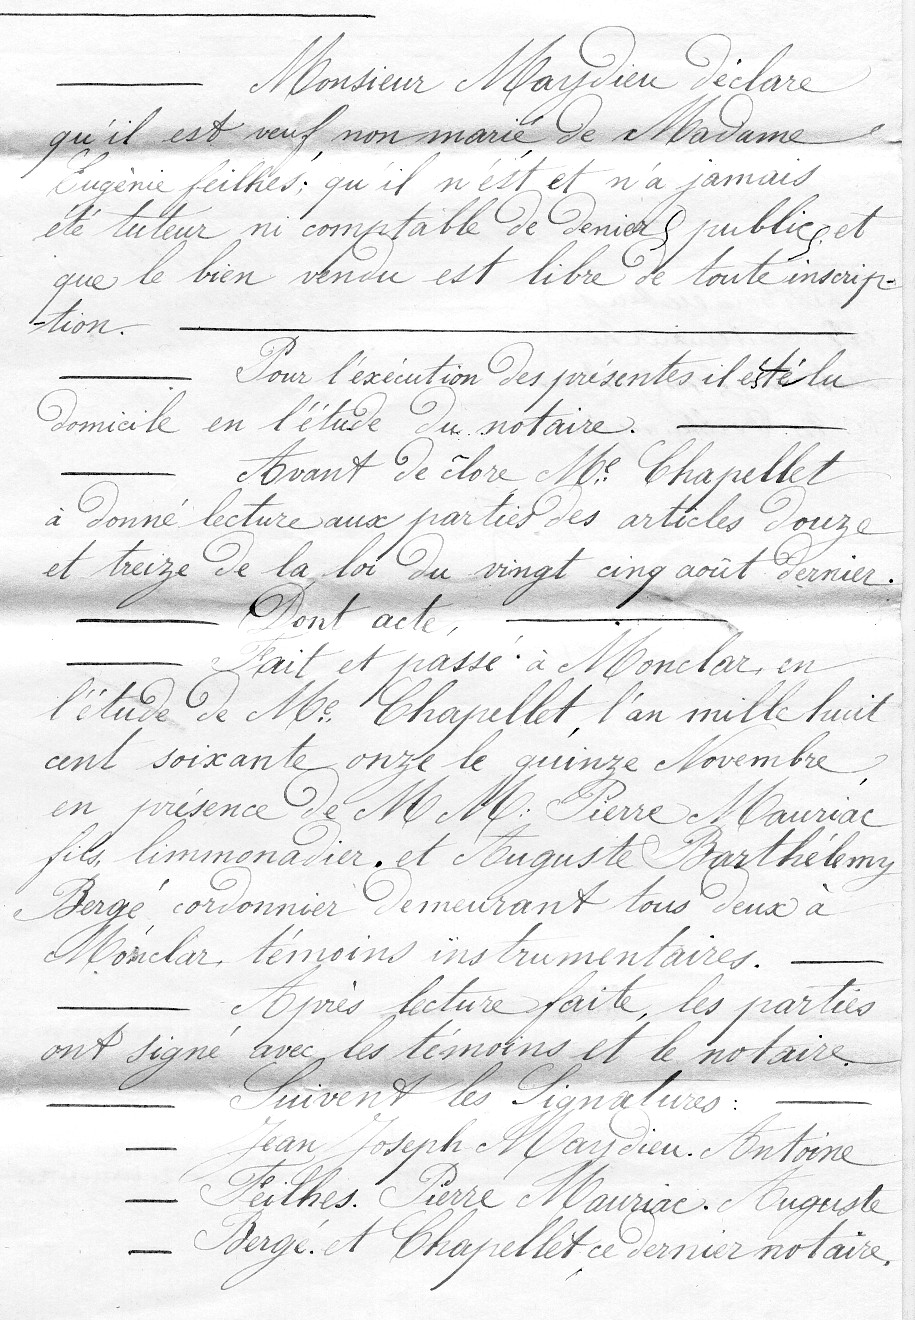 Monsieur Maydieu déclare
qu'il est veuf non marié de Madame
Eugènie feilhés; qu'il n'ést et n'a jamais
été tuteur ni comptable de deniers publics, et
que le bien vendu est libre de toute inscrip-
-tion.
Pour l'éxécution des présentes il est élu
domicile en l'étude du notaire.
Avant de clore Me. Chapellet
à donné lecture aux parties des articles douze
et treize de la loi du vingt cinq août dernier.
Dont acte,
Fait et passé à Monclar, en
l'étude de Me. Chapellet l'an mille huit
cent soixante onze le quinze Novembre
en présence de M M: Pierre Mauriac
fils, limmonadier. et Auguste Barthélemy
Bergé cordonnier demeurant tous deux à
Monclar, témoins instrumentaires.
Après lecture faite, les parties
ont signé avec les témoins et le notaire.
Suivent les Signatures:
Jean Joseph Maydieu. Antoine
Feilhes. Pierre Mauriac. Auguste
Bergé. et Chapellet, ce dernier notaire.